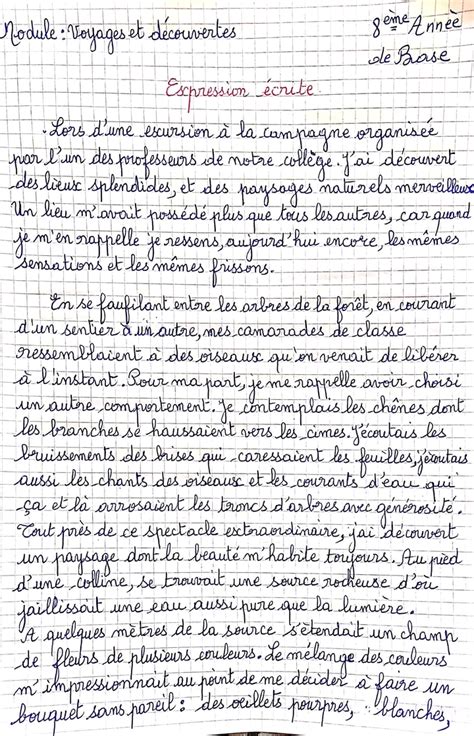 Module : Voyages et découvertes
8ème Année
de Base
Expression écrite
Lors d'une escursion à la campagne organisée
par l'un des professeurs de notre collège. J'ai découvert
des lieux splendides, et des paysages naturels merveilleux
Un lieu m'avait possédé plus que tous les autres, car quand
je m'en rappelle je ressens, aujourd'hui encore, les mêmes
sensations et les mêmes frissons.
En se faufilant entre les arbres de la forêt, en courant
d'un sentier à un autre, mes camarades de classe
ressemblaient à des oiseaux qu'on venait de libérer
à l'instant. Pour ma part, je me rappelle avoir choisi
un autre comportement. Je contemplais les chênes dont
les branches se haussaient vers les cimes. J'écoutais les
bruissements des brises qui caressaient les feuilles, j'écoutais
aussi les chants des oiseaux et les courants d'eau qui
ça et là arrosaient les troncs d'arbres avec générosité.
Tout près de ce spectacle extraordinaire, j'ai découvert
un paysage dont la beauté m'habite toujours. Au pied
d'une colline, se trouvait une source rocheuse d'où
jaillissait une eau aussi pure que la lumière.
A quelques mètres de la source s'étendait un champ
de fleurs de plusieurs couleurs. Le mélange des couleurs
m'impressionnait au point de me décider à faire un
bouquet sans pareil : des oeillets pourpres, blanches,